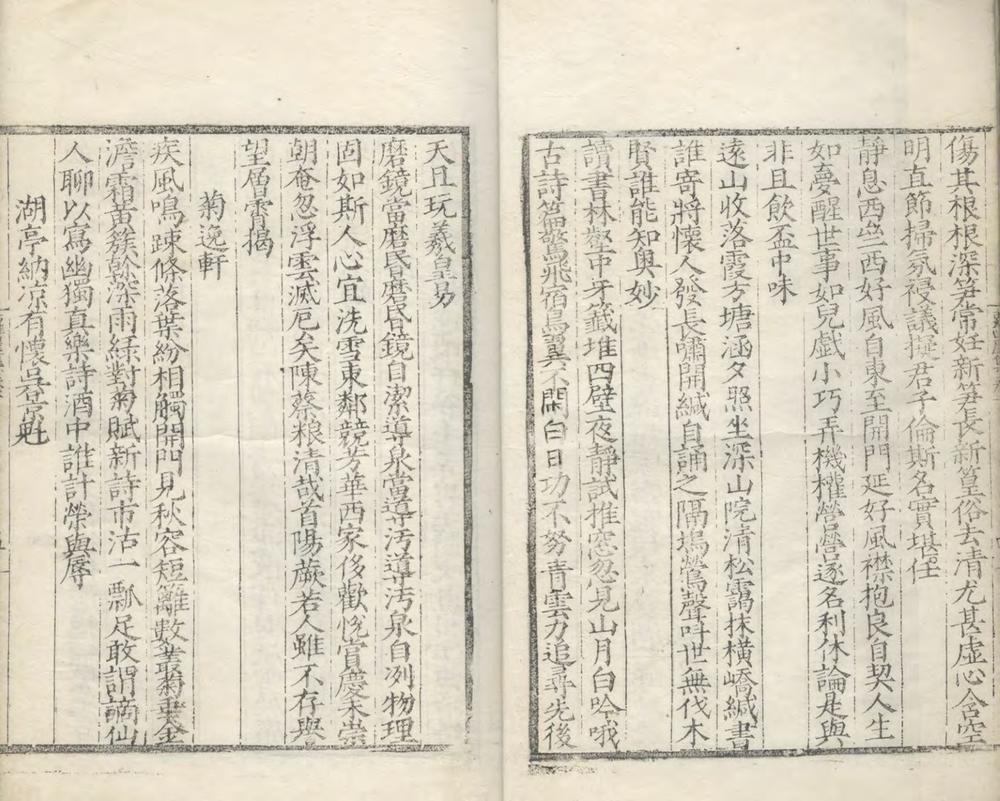 傷其根根深笋常妊新笋長新篁俗去清尤甚虛心含空
明直節掃氛祲議擬君子倫斯名實堪任
靜息西峦西好風自東至開門延好風襟抱良自契人生
如夢醒世事如兒戲小巧弄機權營營逐名利休論是與
非且飲盃中味
遠山收落霞方塘涵夕照坐深山院清松靄抹橫嶠緘書
誰寄將懷人發長嘯開緘自誦之隔塢鶯聲叫世無伐木
賢誰能知奧妙
讀書林壑中牙籤堆四壁夜靜試推窓忽見山月白吟哦
古詩篇驚飛宿鳥翼不閑白日功不努青雲力追尋先後
天且玩羲皇易
磨鏡當磨昏磨昏鏡自潔導泉當導汚導汚泉自冽物理
固如斯人心宜洗雪東鄰競芳華西家侈歡悅賞慶未崇
朝奄忽浮雲滅厄矣陳蔡粮清哉首陽蕨若人雖不存與
望層霄揭
菊逸軒
疾風鳴踈條落葉紛相觸開門見秋容短籬數叢菊棗金
澹霜黃簇𠏉深雨綠對菊賦新詩市沽一瓢足敢謂謫仙
人聊以寫幽獨真樂詩酒中誰許榮與辱
湖亭納凉有懷呈常魁